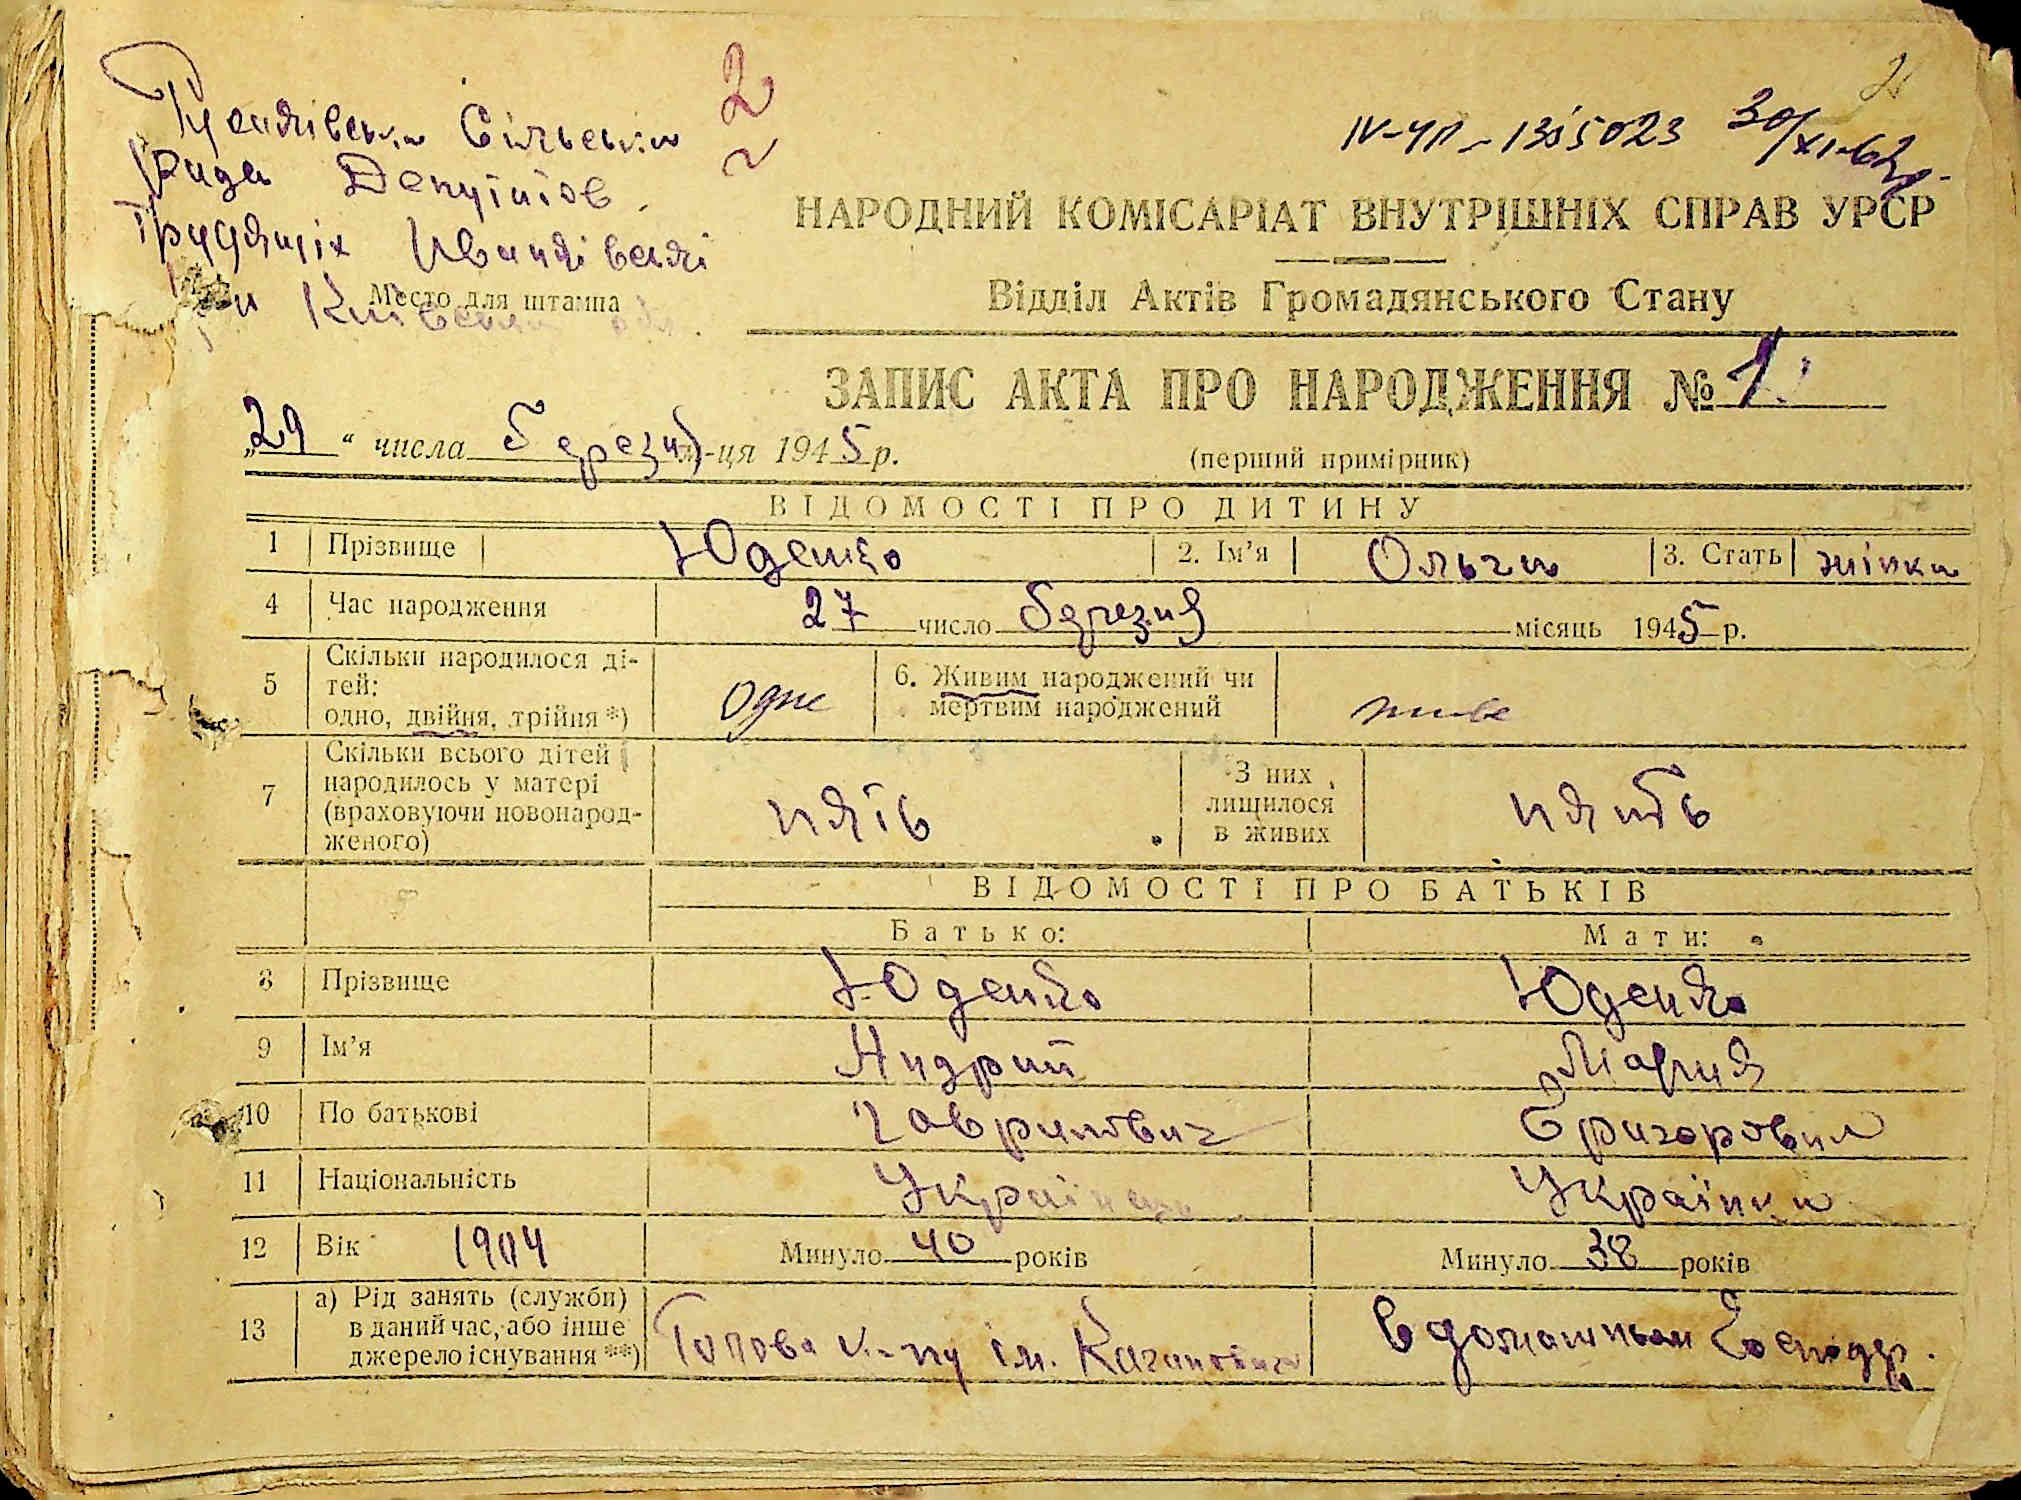 Сільська
рада Депутатов
Трудящіх Иванківскі
Київскои обл.
Место для штампа
2
IV-ЧП-1355023 30/XI-62
НАРОДНИЙ КОМІСАРІАТ ВНУТРІШНІХ СПРАВ УРСР
Відділ Актів Громадянського Стану
ЗАПИС АКТА ПРО НАРОДЖЕННЯ № 1
„29“ числа березня м-ця 1945 р.
(перший примірник)
ВІДОМОСТІ ПРО ДИТИНУ
1 Прізвище Юденко 2. Ім’я Ольга 3. Стать жінка
4 Час народження 27 число березня місяць 1945 р.
5 Скільки народилося ді-
тей:
одно, двійня, трійня *) одне
6. Живим народжений чи
мертвим народжений живе
7 Скільки всього дітей
народилось у матері
(враховуючи новонарод-
женого) пять
З них
лишилося
в живих пять
ВІДОМОСТІ ПРО БАТЬКІВ
Батько: Мати:
8 Прізвище Юденко Юденко
9 Ім’я Андрий Мария
10 По батькові Гаврилович Григоровна
11 Національність Українець Українка
12 Вік 1904 Минуло 40 років Минуло 38 років
13 а) Рід занять (служби)
в даний час, або інше
джерело існування **) Голова к-пу ім. Кагановича в домашньом господр.